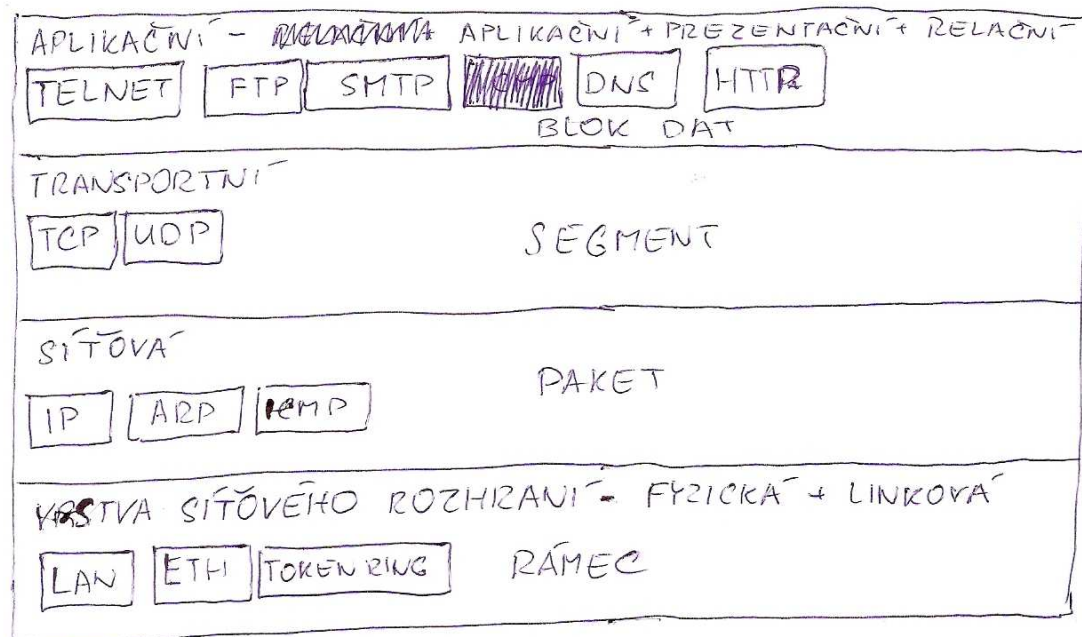 APLIKAČNÍ - APLIKAČNÍ + PREZENTAČNÍ + RELAČNÍ
TELNET FTP SMTP DNS HTTP
BLOK DAT
TRANSPORTNÍ
TCP UDP SEGMENT
SÍŤOVÁ
PAKET
IP ARP ICMP
VRSTVA SÍŤOVÉHO ROZHRANÍ - FYZICKÁ + LINKOVÁ
LAN ETH TOKEN RING RÁMEC